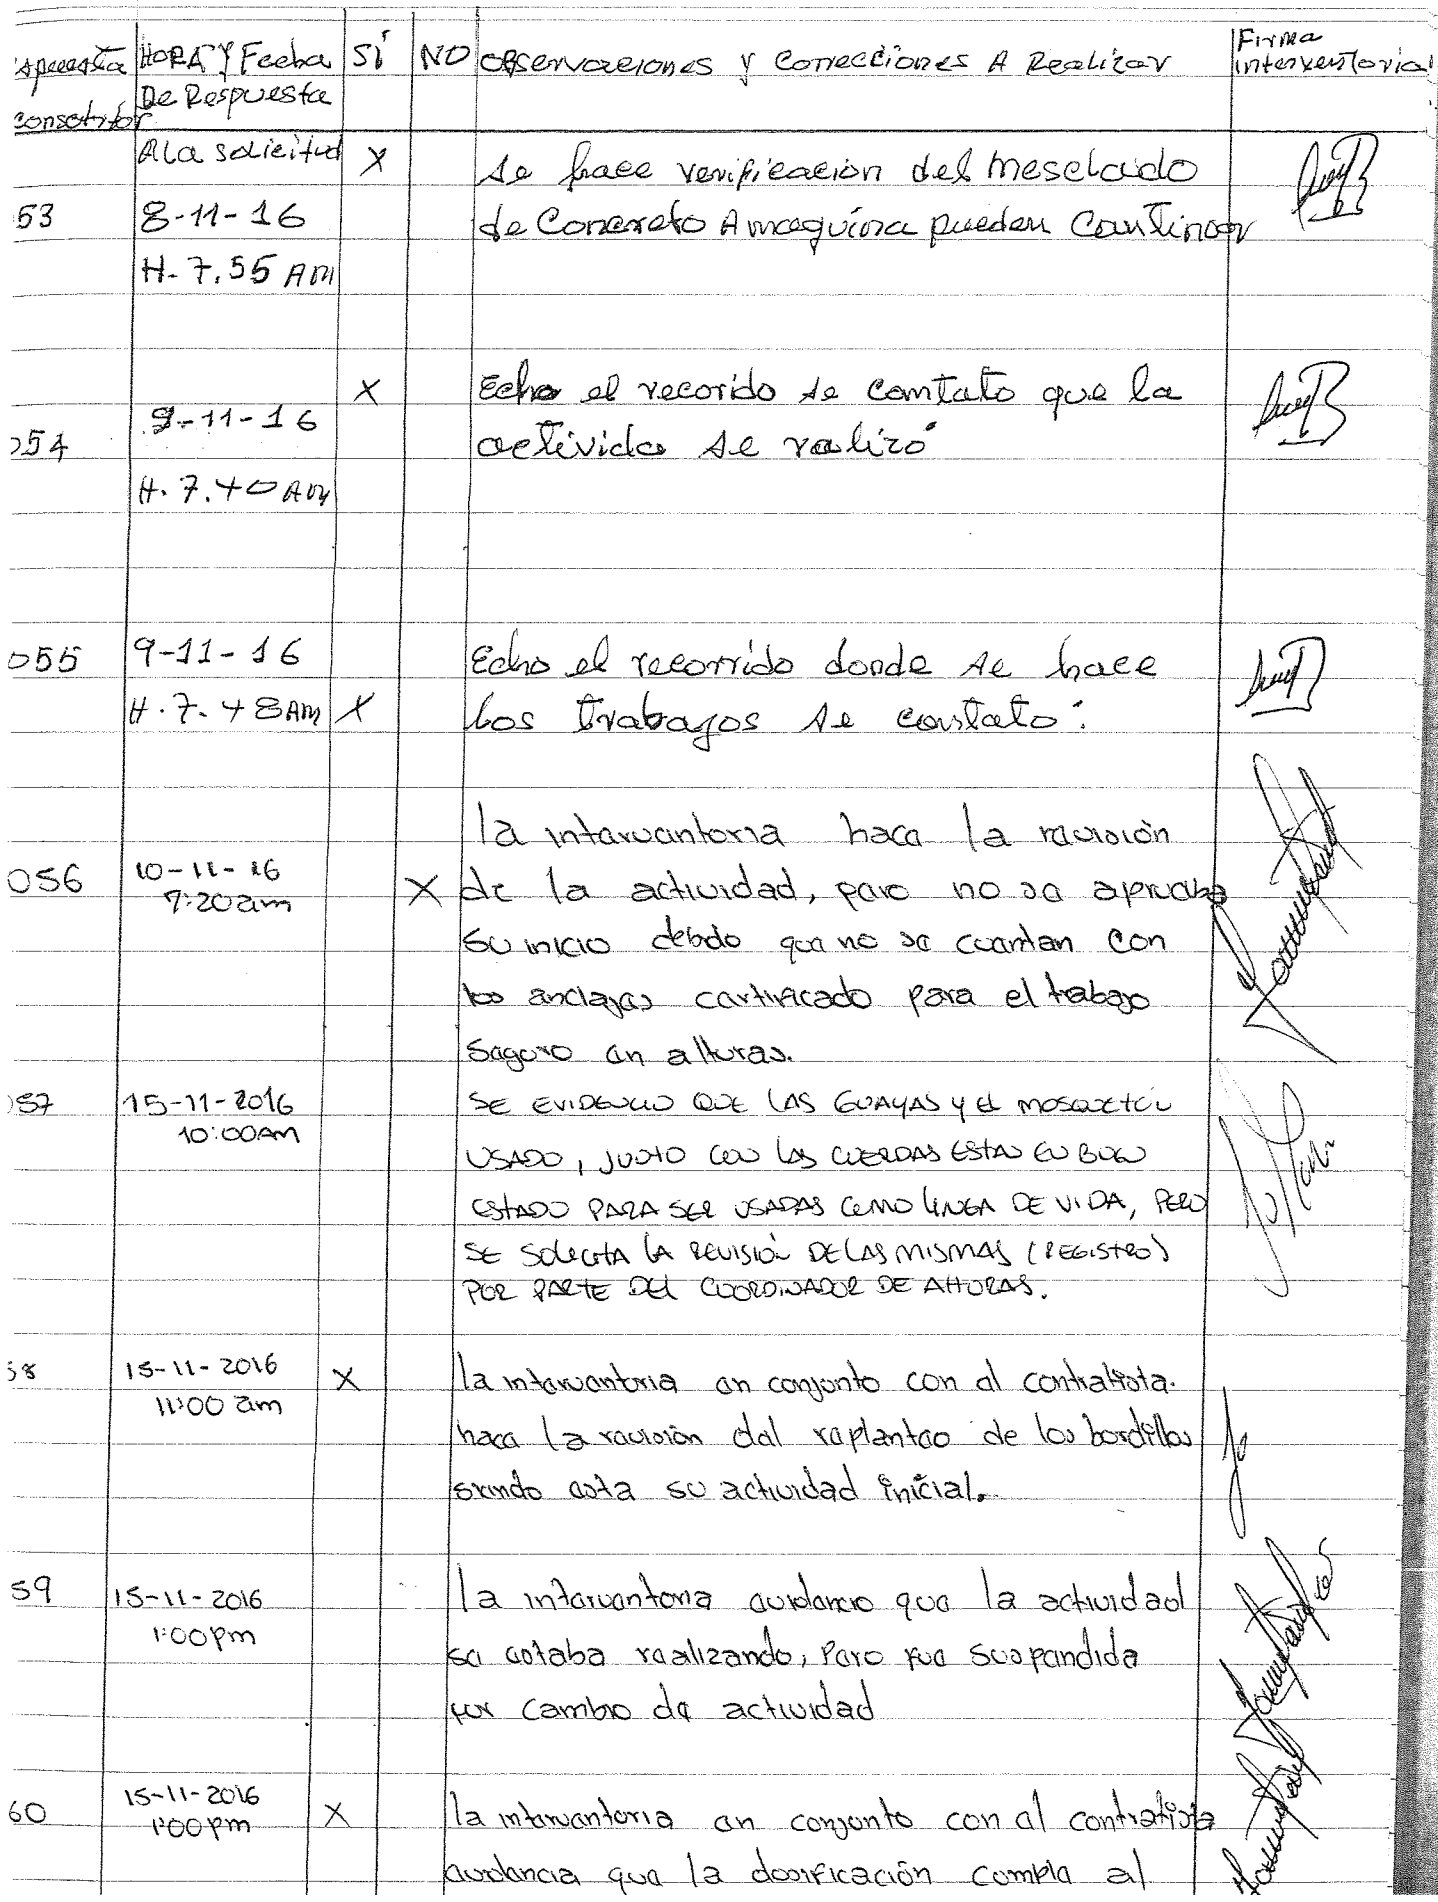 spuesta HORA Y Fecha SÍ NO Observaciones y Correcciones A Realizar Firma
consotitor De Respuesta interventoria
A la solicitud X se hace verificacion del mesclado
53 8-11-16 de Concreto A maquina pueden Continoar
H. 7.55 AM
X Echo el recorido se comtato que la
054 9-11-16 actividad se realizó
H. 7.40 AM
055 9-11-16 Echo el recorrido donde se hace
H. 7.48 AM X los trabajos se constato.
la interventoria hace la revisión
056 10-11-16 X de la actividad, pero no se aprueba
7:20am
su inicio debido que no se cuentan con
los anclajes certificado para el trabajo
seguro en alturas.
057 15-11-2016 SE EVIDENCIO QUE LAS GUAYAS y EL MOSQUETON
10:00AM USADO, JUNTO CON LAS CUERDAS ESTAN EN BUEN
ESTADO PARA SER USADAS COMO LINEA DE VIDA, PERO
SE SOLICITA LA REVISIÓN DE LAS MISMAS (REGISTRO)
POR PARTE DEL COORDINADOR DE ALTURAS.
58 15-11-2016 X la interventoria en conjunto con el contratista.
11:00 am hace la revisión del replanteo de los bordillos
siendo esta su actividad inicial.
59 15-11-2016 la interventoria evidencio que la actividad
1:00pm se estaba realizando, Pero fue suspendida
por cambio de actividad
60 15-11-2016 X la interventoria en conjunto con el contratista
1:00pm
evidencia que la dosificación cumpla al